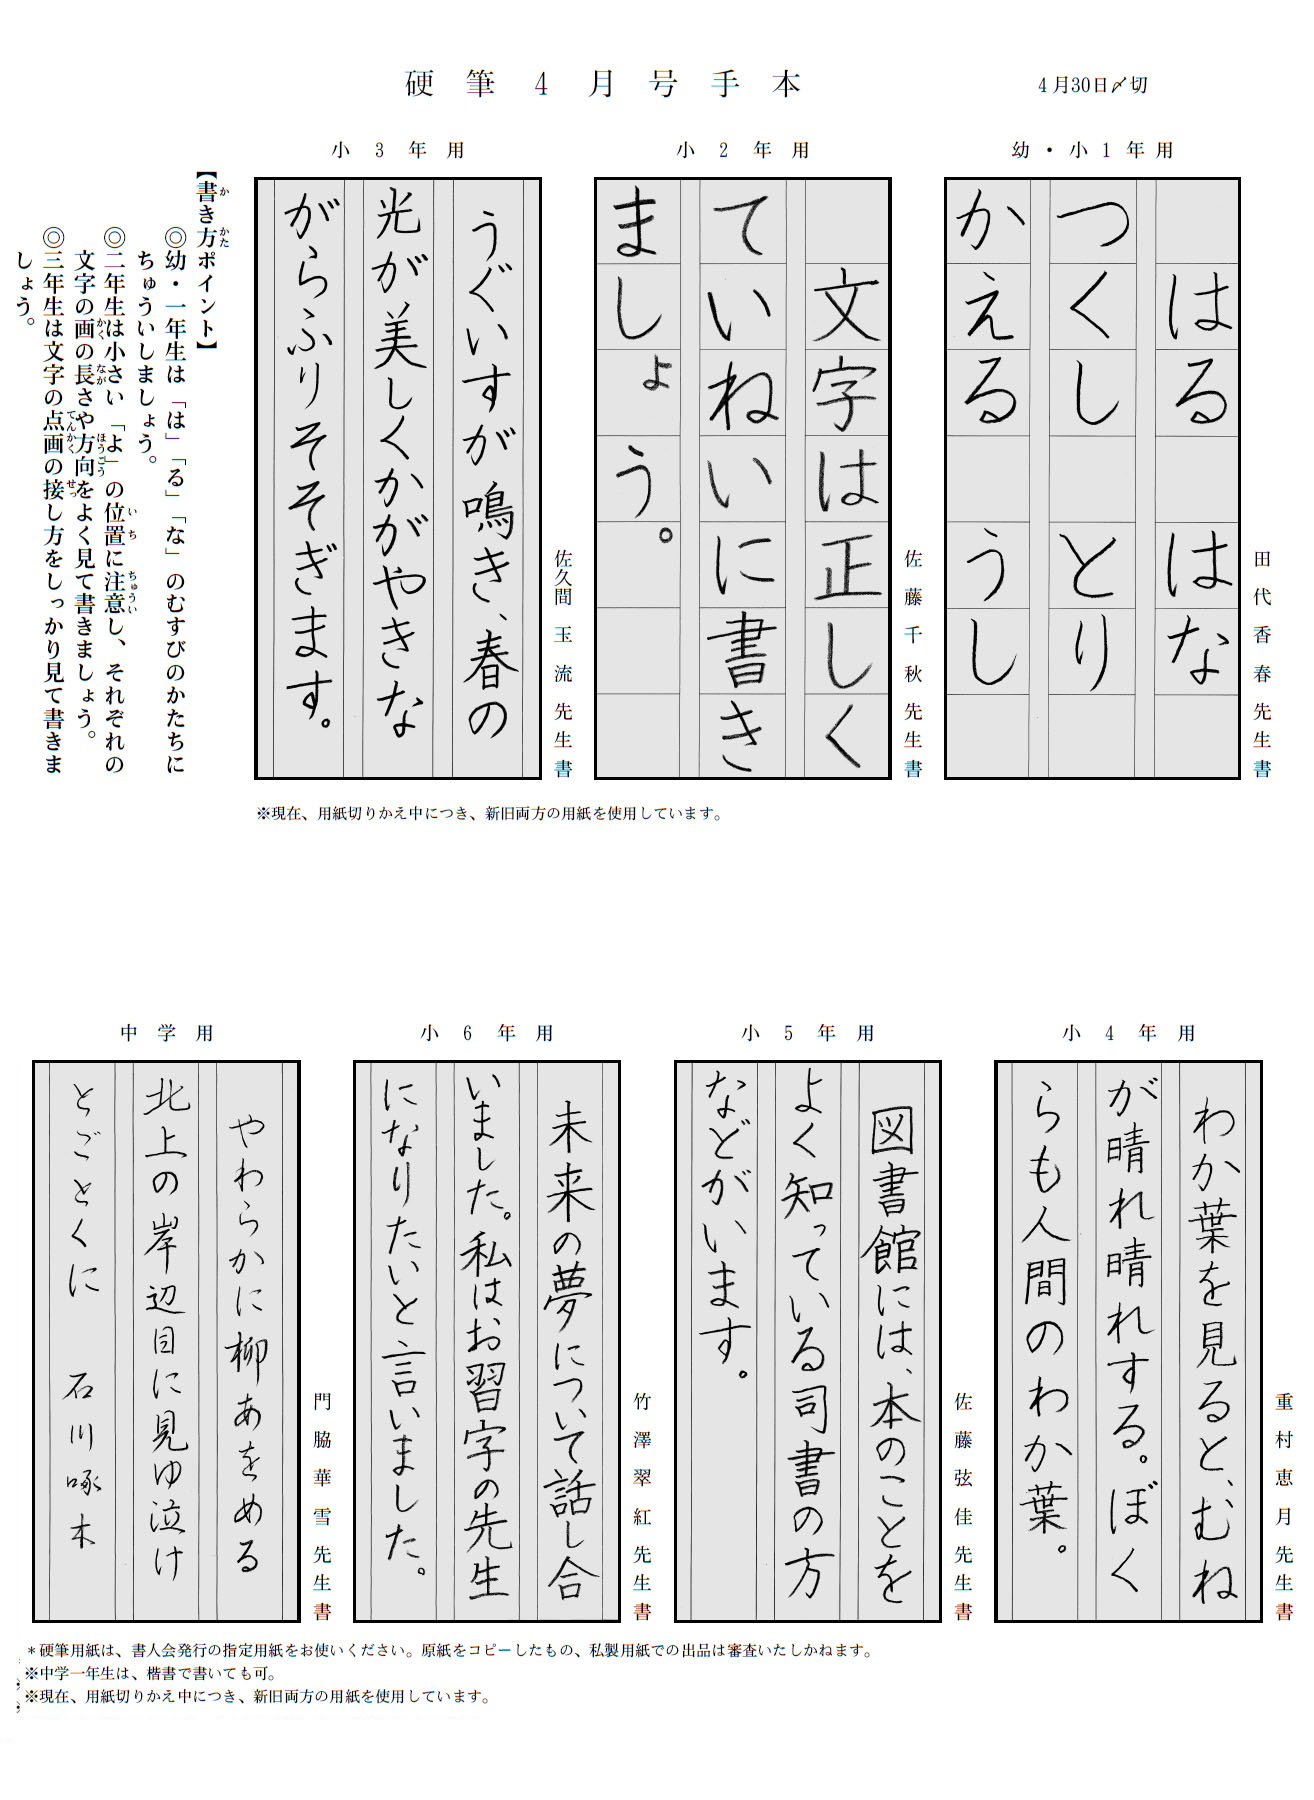 硬筆4月号手本
4月30日〆切
幼・小1年用
はる　はな
つくし　とり
かえる　うし
田代香春先生書
小2年用
文字は正しく
ていねいに書き
ましょう。
佐藤千秋先生書
小3年用
うぐいすが鳴き、春の
光が美しくかがやきな
がらふりそそぎます。
佐久間玉流先生書
【書き方ポイント】
かかた
◎幼・一年生は「は」「る」「な」のむすびのかたちに
ちゅういしましょう。
◎二年生は小さい「よ」の位置に注意し、それぞれの
いちちゅうい
文字の画の長さや方向をよく見て書きましょう。
かくながほうこう
◎三年生は文字の点画の接し方をしっかり見て書きま
てんかくせっ
しょう。
※現在、用紙切りかえ中につき、新旧両方の用紙を使用しています。
小4年用
わか葉を見ると、むね
が晴れ晴れする。ぼく
らも人間のわか葉。
重村恵月先生書
小5年用
図書館には、本のことを
よく知っている司書の方
などがいます。
佐藤弦佳先生書
小6年用
未来の夢について話し合
いました。私はお習字の先生
になりたいと言いました。
竹澤翠紅先生書
中学用
やわらかに柳あをめる
北上の岸辺目に見ゆ泣け
とごとくに　石川啄木
門脇華雪先生書
＊硬筆用紙は、書人会発行の指定用紙をお使いください。原紙をコピーしたもの、私製用紙での出品は審査いたしかねます。
※中学一年生は、楷書で書いても可。
※現在、用紙切りかえ中につき、新旧両方の用紙を使用しています。